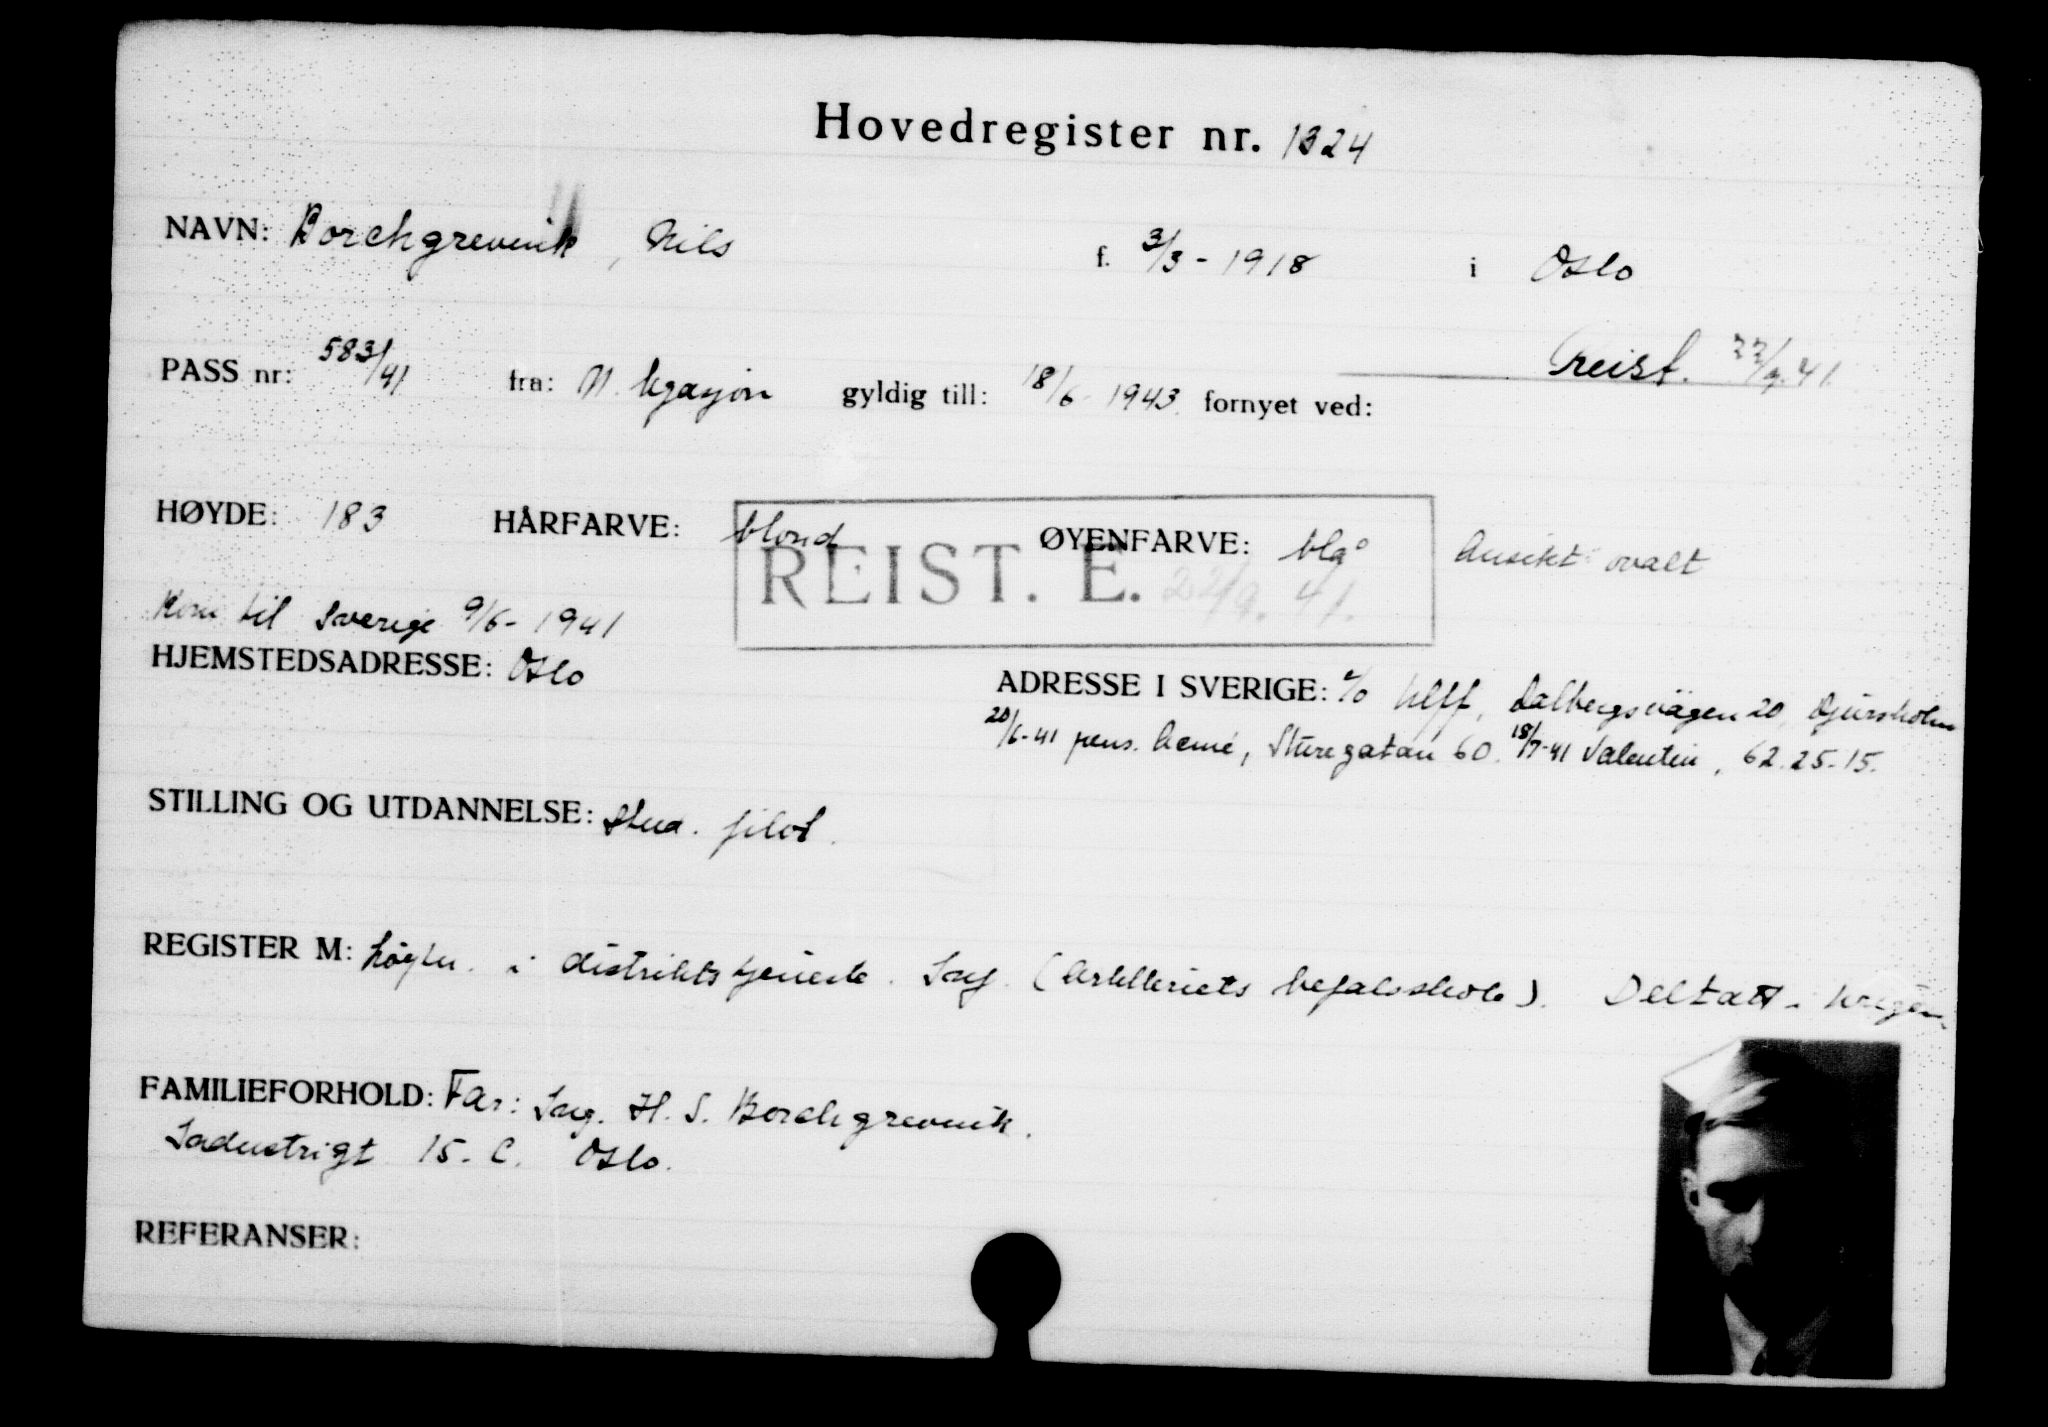 Hovedregister nr. 1324
NAVN: Borchgrevink, Nils f. 3/3 - 1918 i Oslo
reist. 22/9. 41.
PASS nr: 583/41 fra: N. legasjon gyldig till: 18/6 1943 fornyet ved:
HØYDE: 183 HÅRFARVE: blond ØYENFARVE: blå Ansikt ovalt
REIST. E. 22/9. 41.
Kom til Sverige 9/6 - 1941
HJEMSTEDSADRESSE: Oslo
ADRESSE I SVERIGE: c/o Ulff, Dalbergsvägen 20, Djursholm
20/6-41 pens. Sturegatan 60. 18/7-41 Valentin, 62.25.15.
STILLING OG UTDANNELSE: Stud. filol.
REGISTER M: i distriktstjeneste. Inf. (Artilleriets befalsskole). Deltatt i krigen.
FAMILIEFORHOLD: Far: Ing. H. S. Borchgrevink.
Industrigt 15. C. Oslo.
REFERANSER: